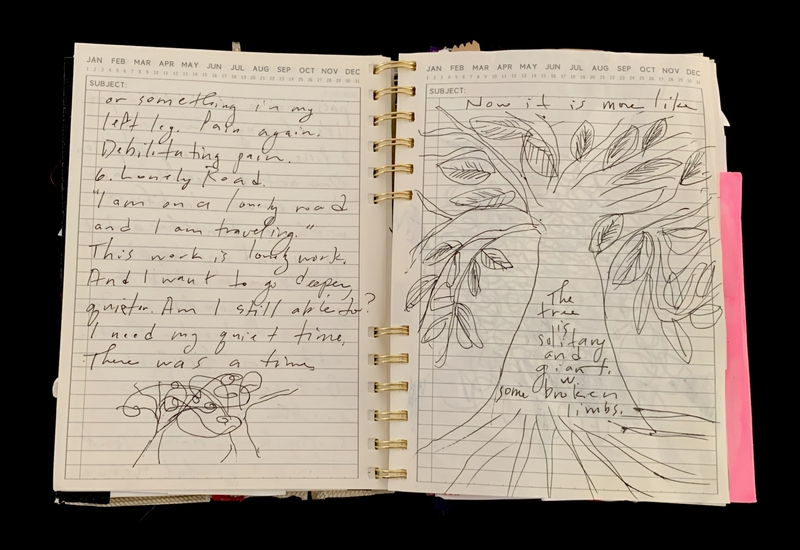 JAN FEB MAR APR MAY JUN JUL AUG SEP OCT NOV DEC
1 2 3 4 5 6 7 8 9 10 11 12 13 14 15 16 17 18 19 20 21 22 23 24 25 26 27 28 29 30 31
SUBJECT:
or something in my
left leg. Pain again.
Debilitating pain.
6. Lonely Road.
"I am on a lonely road
and I am traveling."
This work is lonely work.
And I want to go deeper,
quieter. Am I still able to?
I need my quiet time.
There was a time
JAN FEB MAR APR MAY JUN JUL AUG SEP OCT NOV DEC
1 2 3 4 5 6 7 8 9 10 11 12 13 14 15 16 17 18 19 20 21 22 23 24 25 26 27 28 29 30 31
SUBJECT:
Now it is more like
The
tree
is
solitary
and
giant.
w.
some broken
limbs.